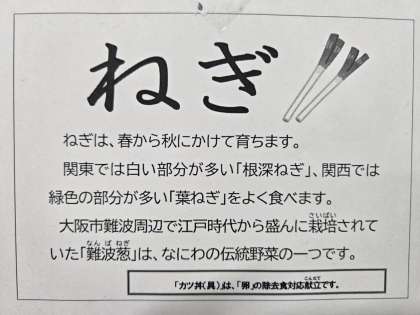 ねぎ
ねぎは、春から秋にかけて育ちます。
関東では白い部分が多い「根深ねぎ」、関西では
緑色の部分が多い「葉ねぎ」をよく食べます。
さいばい
大阪市難波周辺で江戸時代から盛んに栽培されて
なんばねぎ
いた「難波葱」は、なにわの伝統野菜の一つです。
こんだて
「カツ丼(具)」は、「卵」の除去食対応献立です。